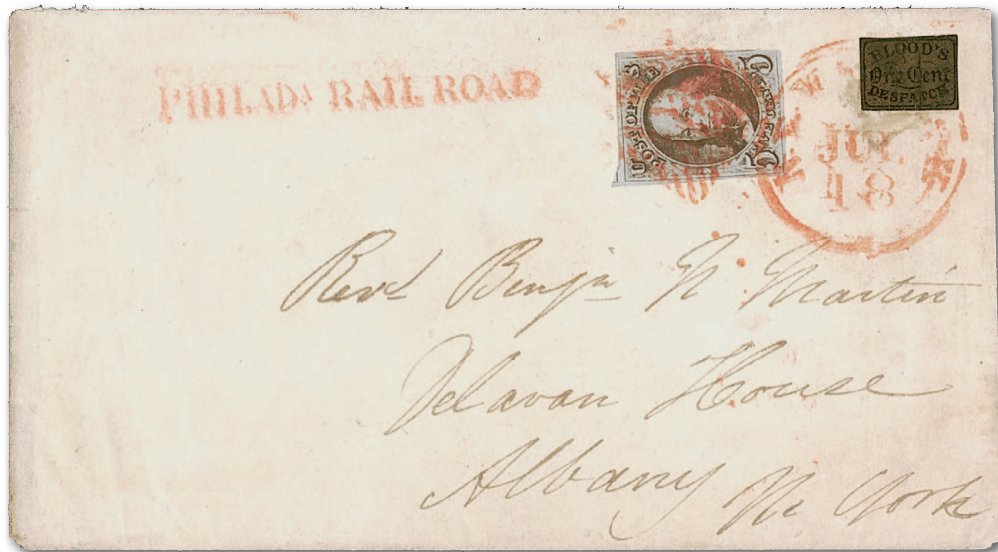 PHILADA RAIL ROAD
POST OFFICE
BLOOD'S
One Cent
DESPATCH
JUL
18
Revd Benjn N Martin
Delavan House
Albany N. York